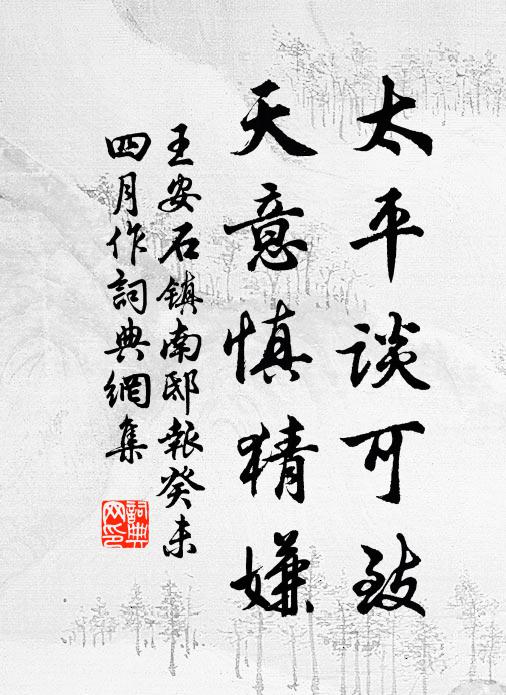 太平谈可致
天意慎猜嫌
王安石镇南邸報癸未
四月作詞典網集
詞典
网印